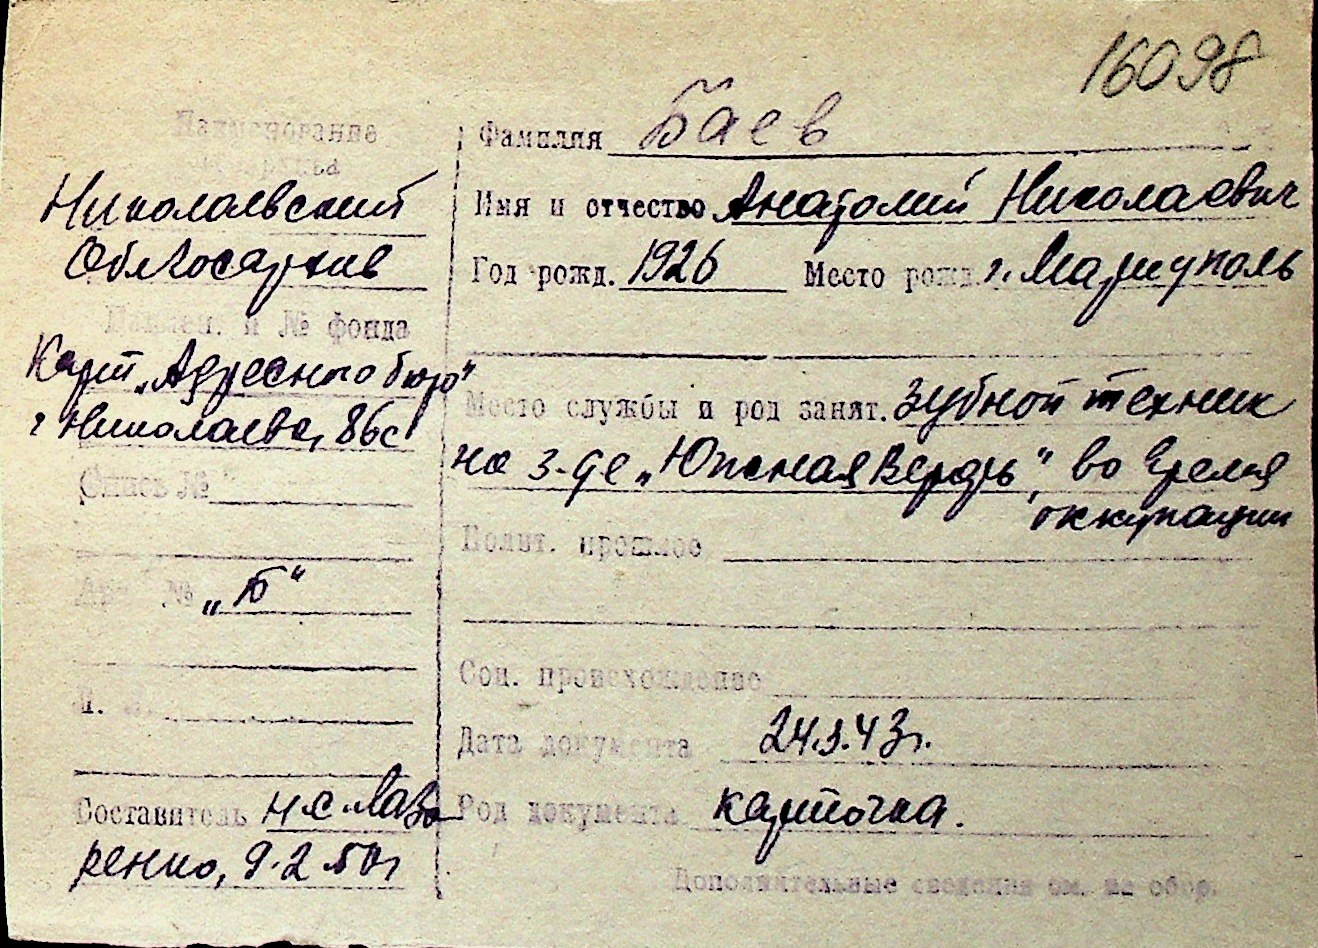 16098
Наименование
Николаевский
Облгосархив
Наимен. и № фонда
Карт „Адресного бюро“
г Николаева, 86с
Опись №
Арх. №
„Б“
Составитель Н.С. Лаза
ренко, 9.2.50г
Фамилия Баев
Имя и отчество Анатолий Николаевич
Год рожд. 1926 Место рожд. г. Мариуполь
Место службы и род занят. Зубной техник
на з-де „Южная Верфь“, во время
оккупации
Полит. прошлое
Соц. происхождение
Дата документа 24.9.43г.
Род документа карточка.
Дополнительные сведения см. на обор.